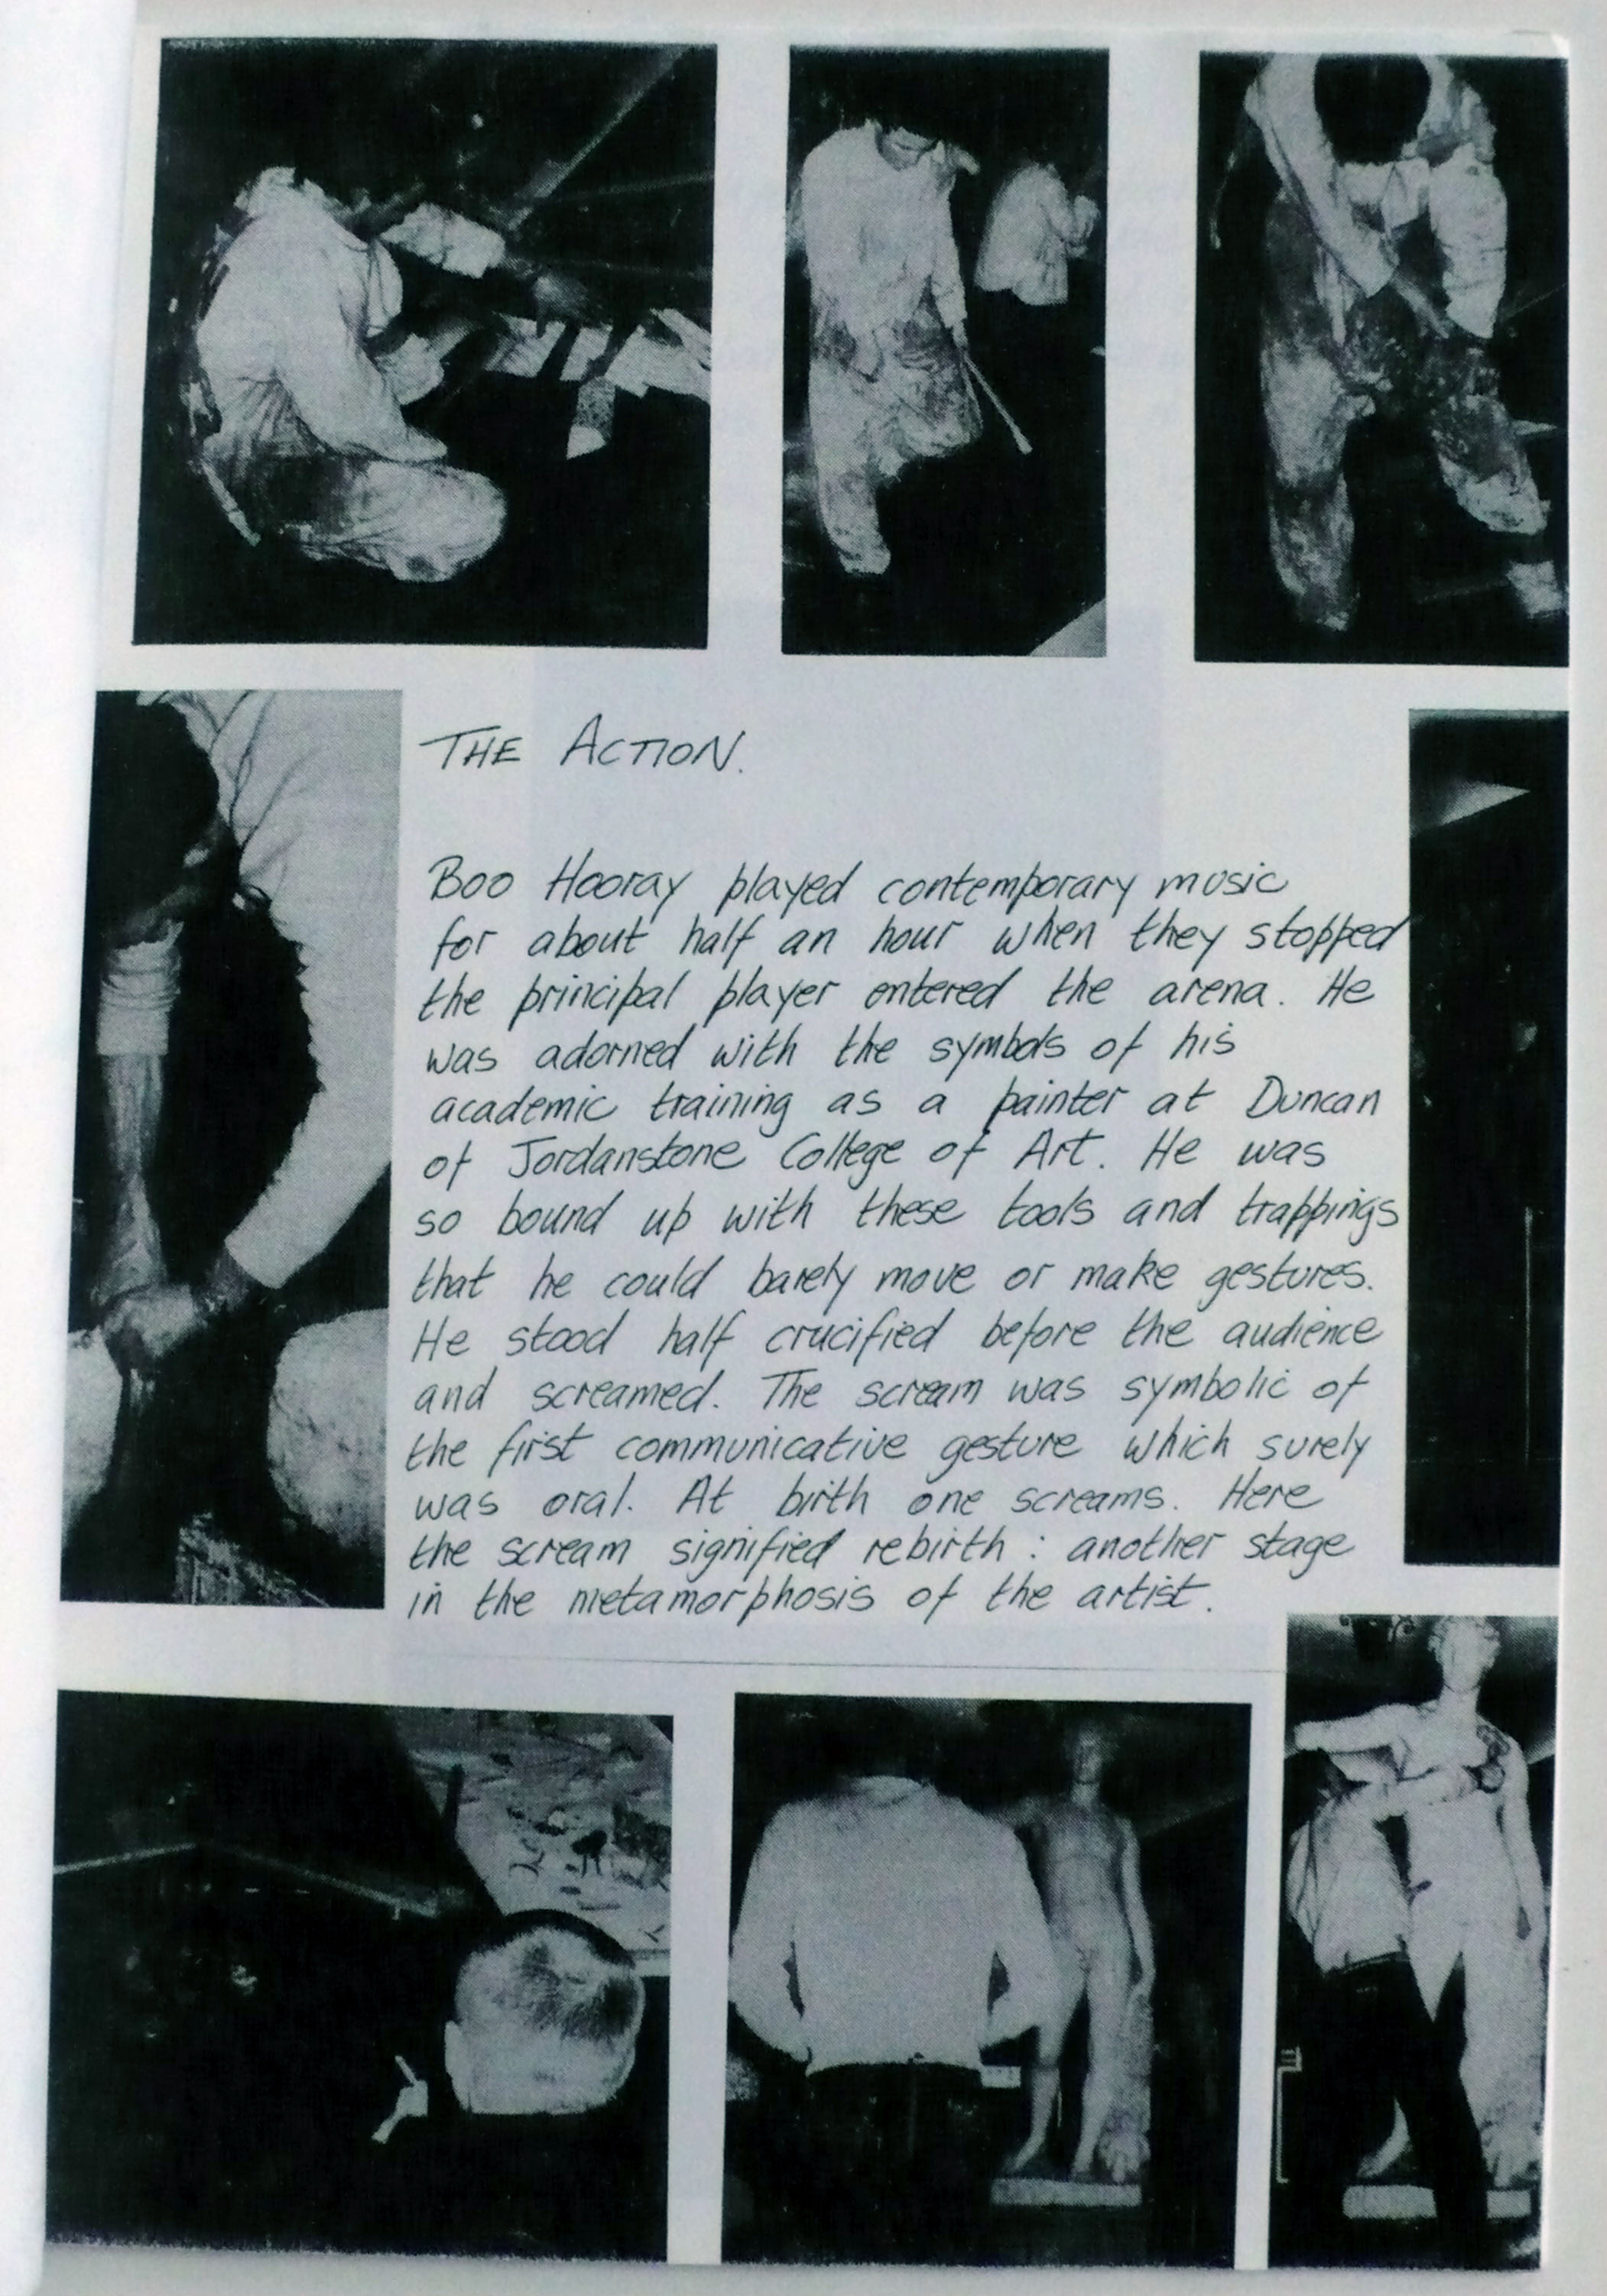 THE ACTION.
Boo Hooray played contemporary music
for about half an hour when they stopped
the principal player entered the arena. He
was adorned with the symbols of his
academic training as a painter at Duncan
of Jordanstone College of Art. He was
so bound up with these tools and trappings
that he could barely move or make gestures.
He stood half crucified before the audience
and screamed. The scream was symbolic of
the first communicative gesture which surely
was oral. At birth one screams. Here
the scream signified rebirth : another stage
in the metamorphosis of the artist.